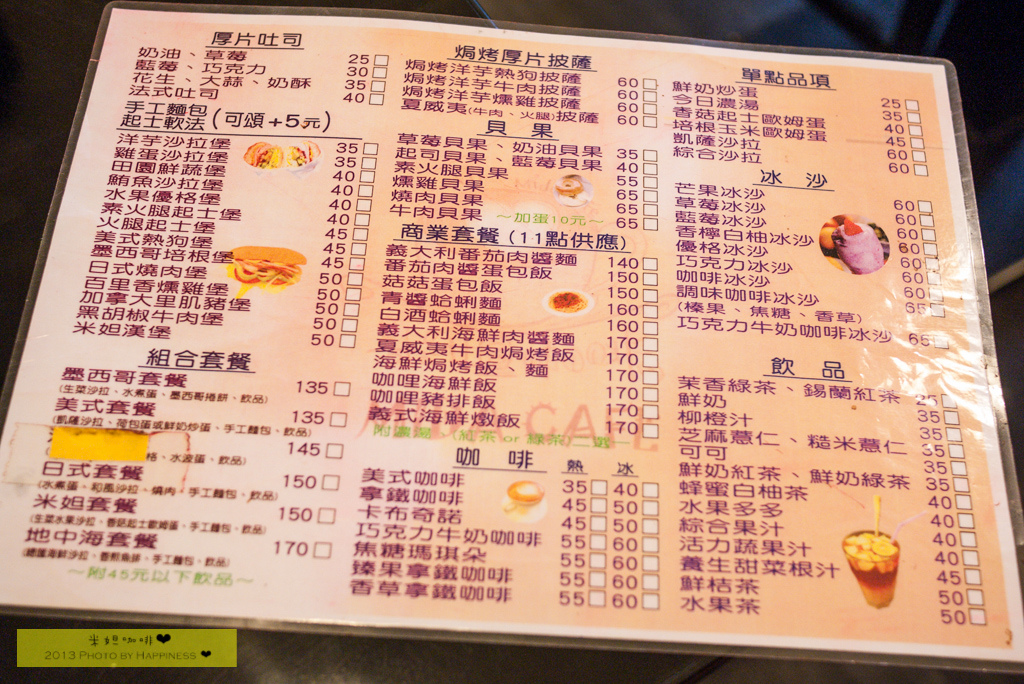 厚片吐司
奶油、草莓 25
藍莓、巧克力 30
花生、大蒜、奶酥 35
法式吐司 40
手工麵包
起士軟法(可頌+5元)
洋芋沙拉堡 35
雞蛋沙拉堡 35
田園鮮蔬堡 40
鮪魚沙拉堡 40
水果優格堡 40
素火腿起士堡 40
火腿起士堡 45
美式熱狗堡 45
墨西哥培根堡 45
日式燒肉堡 50
百里香燻雞堡 50
加拿大里肌豬堡 50
黑胡椒牛肉堡 50
米妲漢堡 50
組合套餐
墨西哥套餐 135
(生菜沙拉、水煮蛋、墨西哥捲餅、飲品)
美式套餐 135
(凱薩沙拉、荷包蛋或鮮奶炒蛋、手工麵包、飲品)
145
格、水波蛋、飲品)
日式套餐 150
(水煮蛋、和風沙拉、燒肉、手工麵包、飲品)
米妲套餐 150
(生菜水果沙拉、香菇起士歐姆蛋、手工麵包、飲品)
地中海套餐 170
(總匯海鮮沙拉、香煎魚排、手工麵包、飲品)
～附45元以下飲品～
焗烤厚片披薩
焗烤洋芋熱狗披薩 60
焗烤洋芋牛肉披薩 60
焗烤洋芋燻雞披薩 60
夏威夷(牛肉、火腿)披薩 60
貝果
草莓貝果、奶油貝果 35
起司貝果、藍莓貝果 40
素火腿貝果 55
燻雞貝果 65
燒肉貝果 65
牛肉貝果 ～加蛋10元～ 65
商業套餐(11點供應)
義大利番茄肉醬麵 140
番茄肉醬蛋包飯 150
菇菇蛋包飯 150
青醬蛤蜊麵 160
白酒蛤蜊麵 160
義大利海鮮肉醬麵 170
夏威夷牛肉焗烤飯 170
海鮮焗烤飯、麵 170
咖哩海鮮飯 170
咖哩豬排飯 170
義式海鮮燉飯 170
附濃湯 (紅茶 or 綠茶)二選一
咖啡 熱 冰
美式咖啡 35 40
拿鐵咖啡 45 50
卡布奇諾 45 50
巧克力牛奶咖啡 55 60
焦糖瑪琪朵 55 60
臻果拿鐵咖啡 55 60
香草拿鐵咖啡 55 60
單點品項
鮮奶炒蛋 25
今日濃湯 35
香菇起士歐姆蛋 40
培根玉米歐姆蛋 45
凱薩沙拉 60
綜合沙拉 60
冰沙
芒果冰沙 60
草莓冰沙 60
藍莓冰沙 60
香檸白柚冰沙 60
優格冰沙 60
巧克力冰沙 60
咖啡冰沙 60
調味咖啡冰沙 65
(榛果、焦糖、香草)
巧克力牛奶咖啡冰沙 65
飲品
茉香綠茶、錫蘭紅茶 25
鮮奶 35
柳橙汁 35
芝麻薏仁、糙米薏仁 35
可可 35
鮮奶紅茶、鮮奶綠茶 35
蜂蜜白柚茶 40
水果多多 40
綜合果汁 40
活力蔬果汁 40
養生甜菜根汁 45
鮮桔茶 50
水果茶 50
米妲咖啡❤
2013 PHOTO BY HAPPINESS ❤